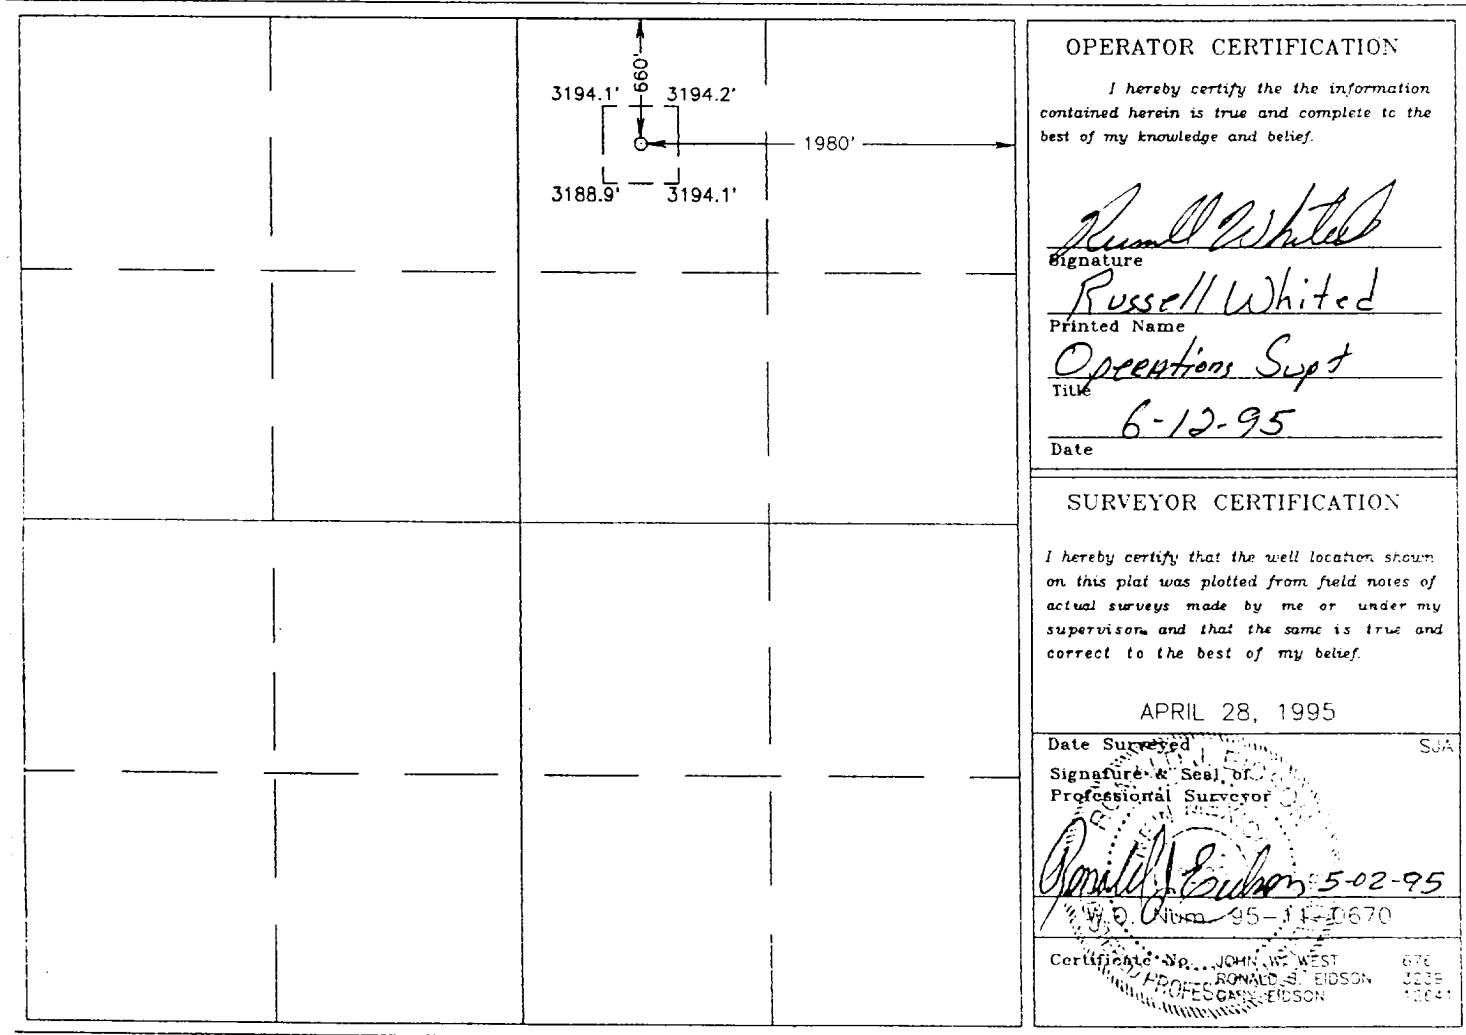 660'
3194.1' 3194.2'
1980'
3188.9' 3194.1'
OPERATOR CERTIFICATION
I hereby certify the the information
contained herein is true and complete to the
best of my knowledge and belief.
Russell Whited
Signature
Russell Whited
Printed Name
Operations Supt
Title
6-12-95
Date
SURVEYOR CERTIFICATION
I hereby certify that the well location shown
on this plat was plotted from field notes of
actual surveys made by me or under my
supervison, and that the same is true and
correct to the best of my belief.
APRIL 28, 1995
Date Surveyed SJA
Signature & Seal of
Professional Surveyor
Ronald J Eidson 5-02-95
W.O. Num. 95-11-0670
Certificate No. JOHN W. WEST 676
RONALD J. EIDSON 3239
GARY EIDSON 12641
NEW MEXICO